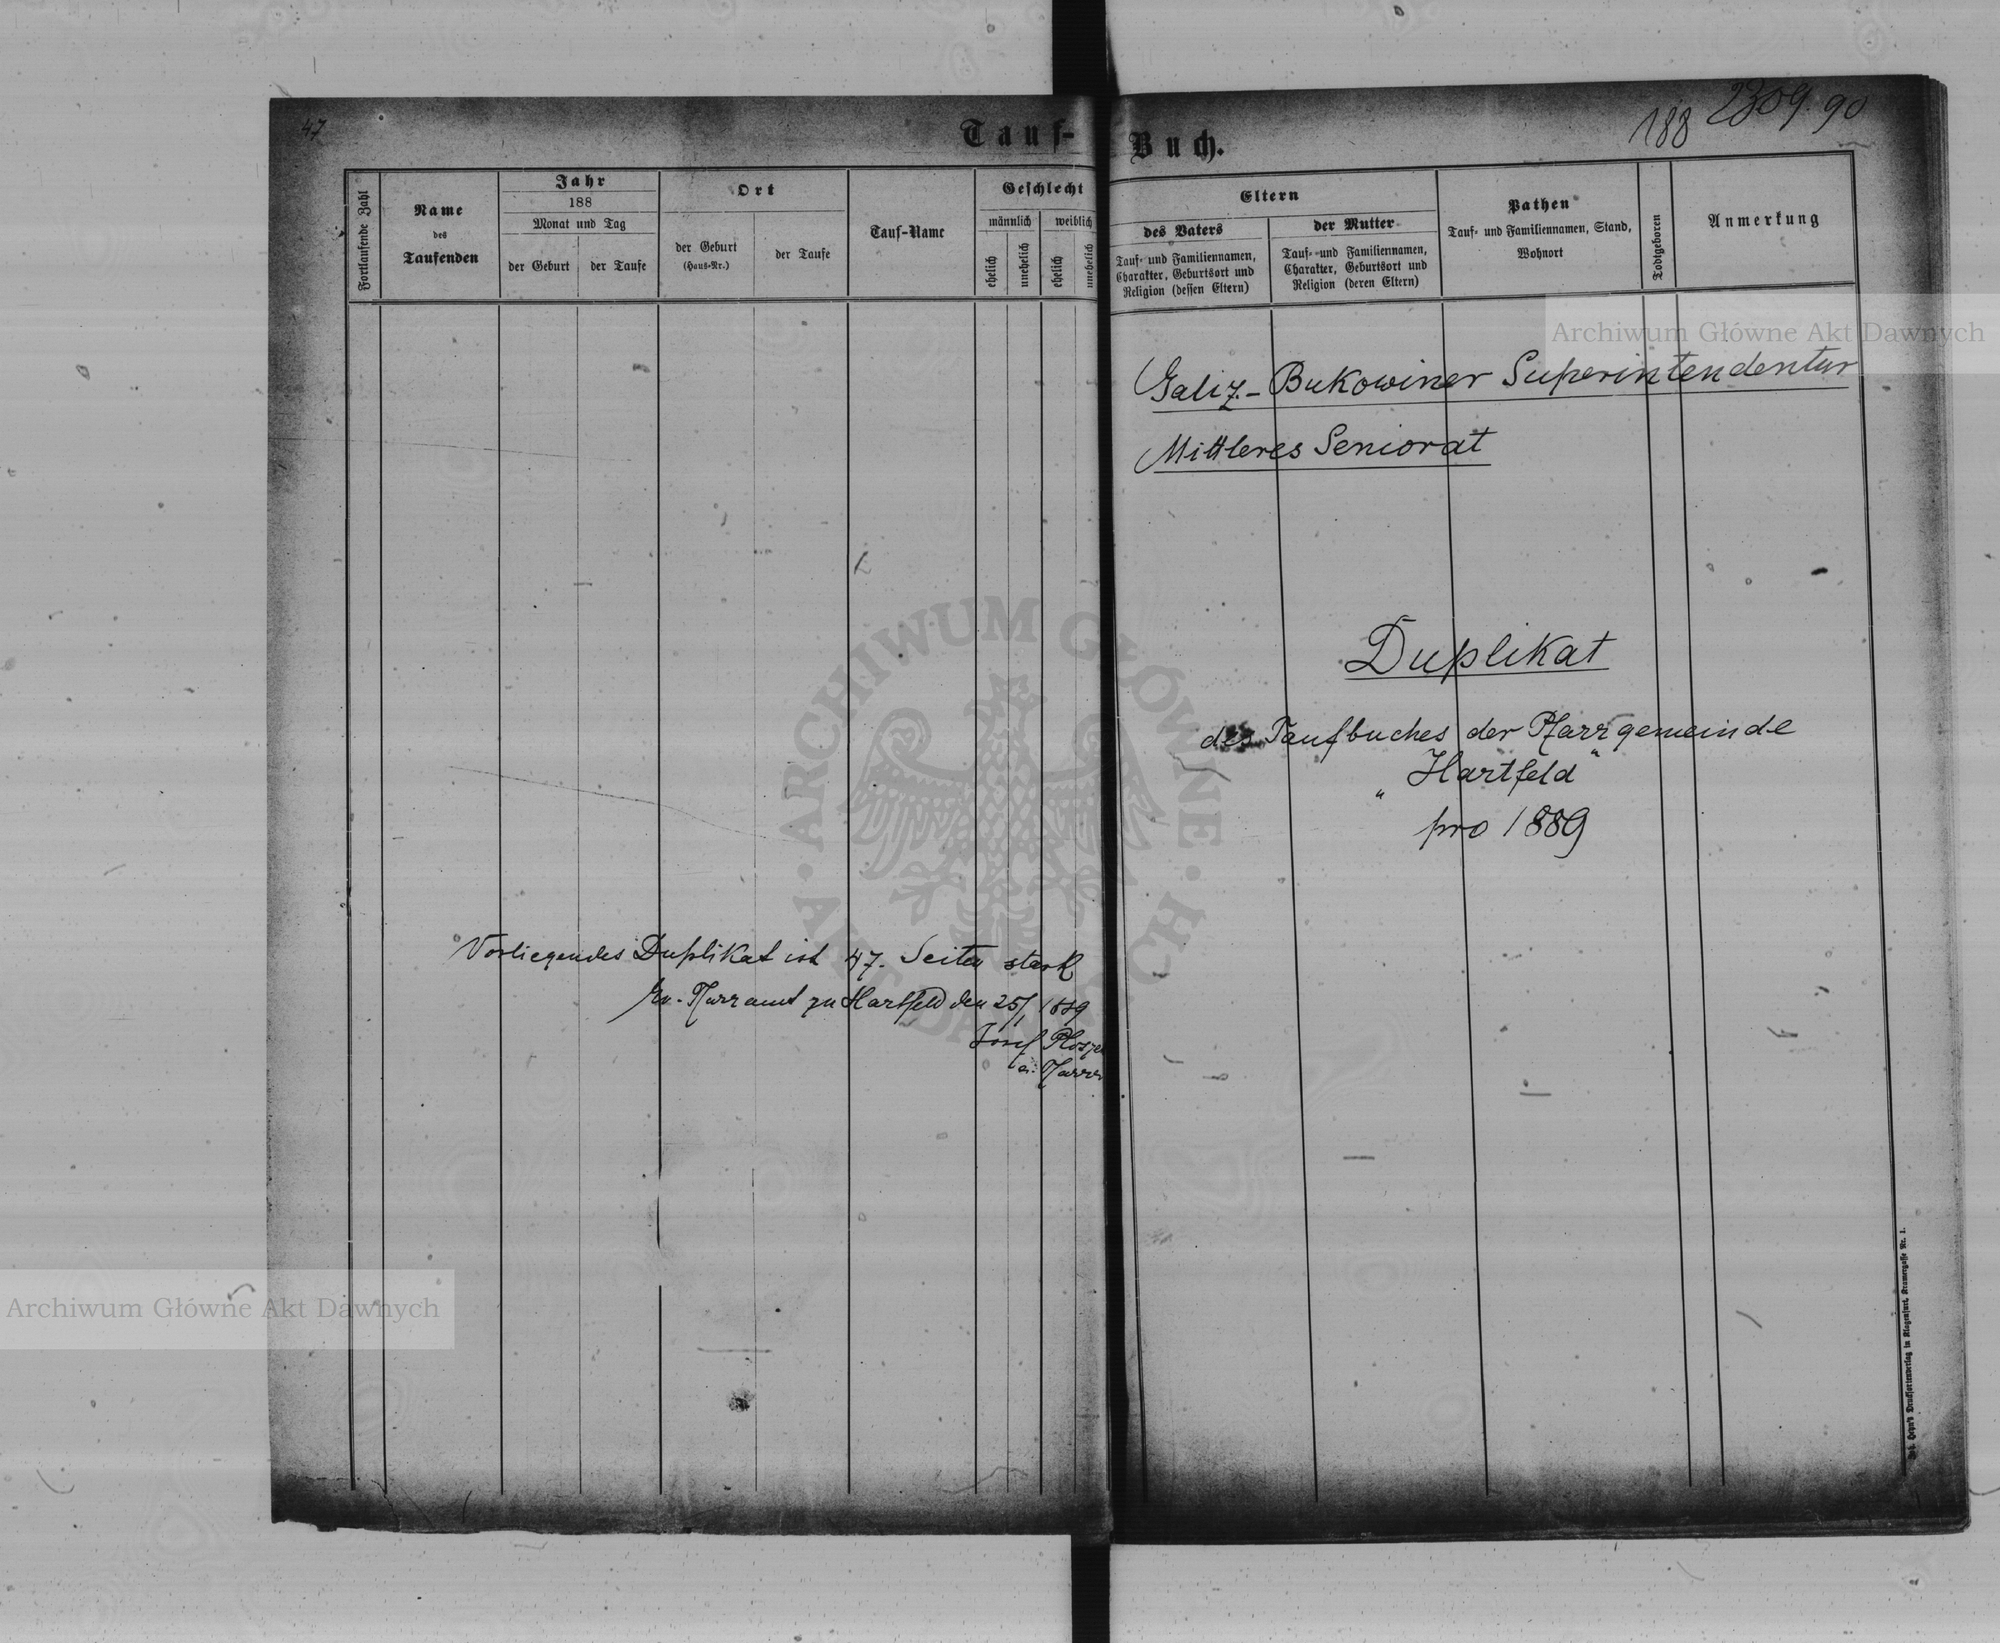 47
Tauf-
Fortlaufende Zahl
Name
des
Taufenden
Jahr
188
Monat und Tag
der Geburt
der Taufe
Ort
der Geburt
(Haus-Nr.)
der Taufe
Tauf-Name
Geschlecht
männlich
weiblich
ehelich
unehelich
ehelich
unehelich
Vorliegendes Duplikat ist 47. Seiten stark
Ev. Pfarramt zu Hartfeld den 25/1 1889
Josef
Pfarrer
Buch.
188
2309.90
Eltern
des Vaters
Tauf- und Familiennamen,
Charakter, Geburtsort und
Religion (dessen Eltern)
der Mutter
Tauf- und Familiennamen,
Charakter, Geburtsort und
Religion (deren Eltern)
Pathen
Tauf- und Familiennamen, Stand,
Wohnort
Todtgeboren
Anmerkung
Galiz.- Bukowiner Superintendentur
Mittleres Seniorat
Duplikat
des Taufbuches der Pfarrgemeinde
„Hartfeld“
pro 1889
Joh. Heyn's Drucksortenverlag in Klagenfurt, Kramergasse Nr. 1.
Archiwum Główne Akt Dawnych
Archiwum Główne Akt Dawnych
ARCHIWUM GŁÓWNE AKT DAWNYCH